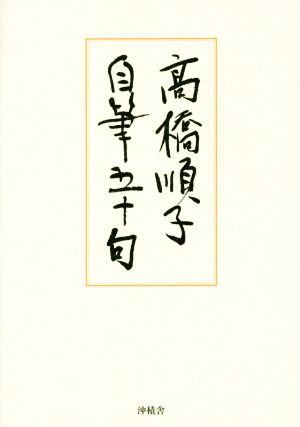 高橋順子
自筆五十句
沖積舎